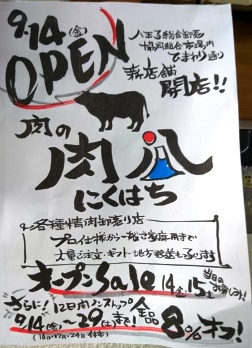 9.14(金)
OPEN
八王子総合卸売
協同組合市場内
ひまわり通り
新店舗
開店!!
肉の
肉八
にくはち
各種精肉卸売り店
プロ仕様から一般ご家庭用まで
大量注文・ギフト・地方発送も承ります
オープンSale 14(金)15(土)
当日の
お楽しみ!
さらに!12日間ノンストップ
9/14(金)〜29(土)まで!全品8%オフ!